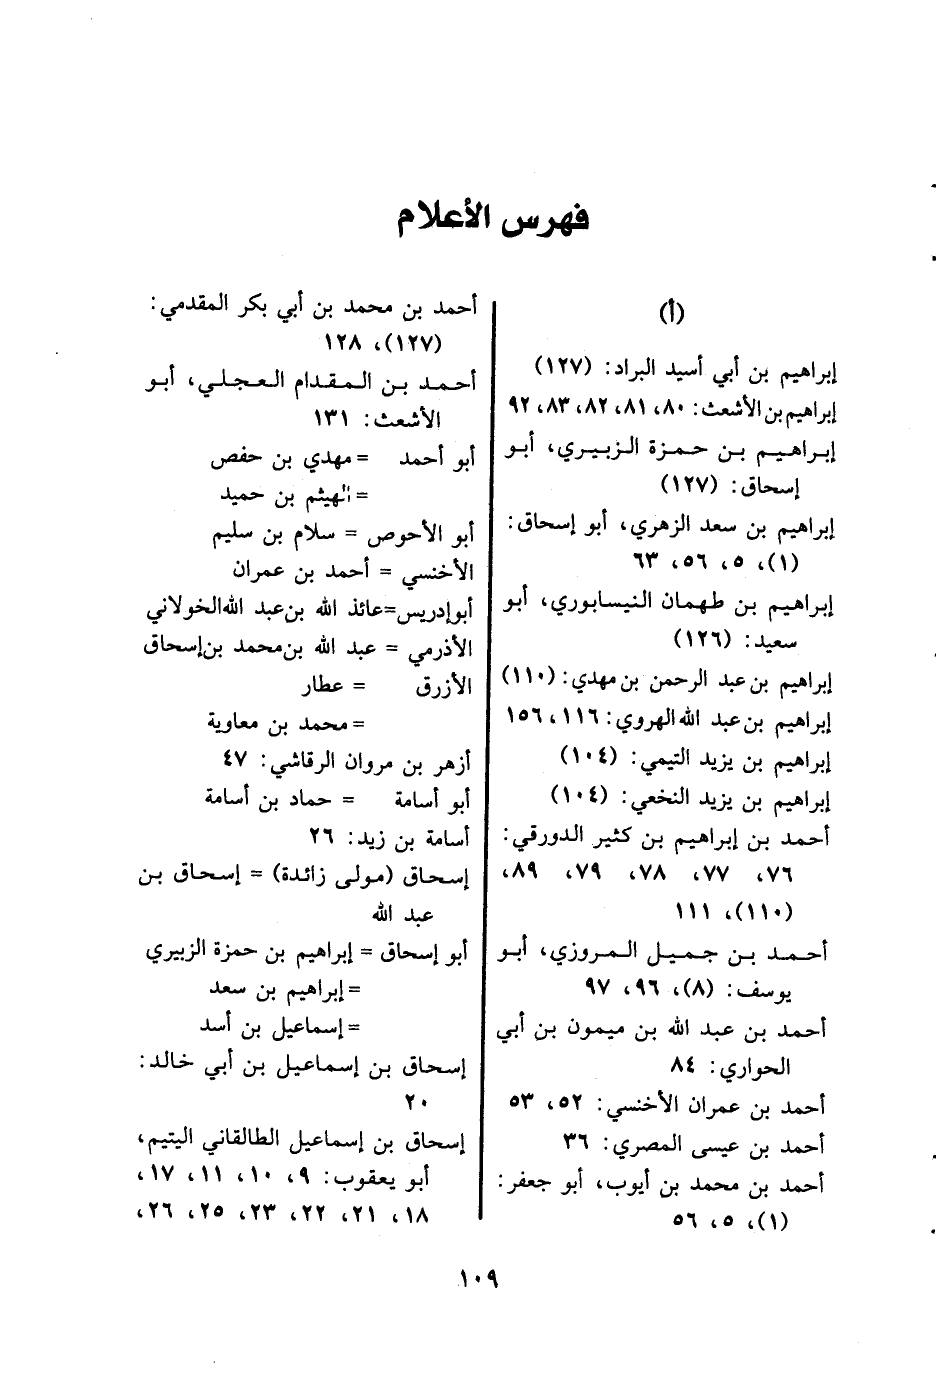 فهرس الأعلام
(أ)
إبراهيم بن أبي أسيد البراد: (١٢٧)
إبراهيم بن الأشعث: ٨٠، ٨١، ٨٢، ٨٣، ٩٢
إبراهيم بن حمزة الزبيري، أبو
إسحاق: (١٢٧)
إبراهيم بن سعد الزهري، أبو إسحاق:
(١)، ٥، ٥٦، ٦٣
إبراهيم بن طهمان النيسابوري، أبو
سعيد: (١٢٦)
إبراهيم بن عبد الرحمن بن مهدي: (١١٠)
إبراهيم بن عبد الله الهروي: ١١٦، ١٥٦
إبراهيم بن يزيد التيمي: (١٠٤)
إبراهيم بن يزيد النخعي: (١٠٤)
أحمد بن إبراهيم بن كثير الدورقي:
٧٦، ٧٧، ٧٨، ٧٩، ٨٩،
(١١٠)، ١١١
أحمد بن جميل المروزي، أبو
يوسف: (٨)، ٩٦، ٩٧
أحمد بن عبد الله بن ميمون بن أبي
الحواري: ٨٤
أحمد بن عمران الأخنسي: ٥٢، ٥٣
أحمد بن عيسى المصري: ٣٦
أحمد بن محمد بن أيوب، أبو جعفر:
(١)، ٥، ٥٦
أحمد بن محمد بن أبي بكر المقدمي:
(١٢٧)، ١٢٨
أحمد بن المقدام العجلي، أبو
الأشعث: ١٣١
أبو أحمد = مهدي بن حفص
= الهيثم بن حميد
أبو الأحوص = سلام بن سليم
الأخنسي = أحمد بن عمران
أبو إدريس = عائذ الله بن عبد الله الخولاني
الأذرمي = عبد الله بن محمد بن إسحاق
الأزرق = عطار
= محمد بن معاوية
أزهر بن مروان الرقاشي: ٤٧
أبو أسامة = حماد بن أسامة
أسامة بن زيد: ٢٦
إسحاق (مولى زائدة) = إسحاق بن
عبد الله
أبو إسحاق = إبراهيم بن حمزة الزبيري
= إبراهيم بن سعد
= إسماعيل بن أسد
إسحاق بن إسماعيل بن أبي خالد:
٢٠
إسحاق بن إسماعيل الطالقاني اليتيم،
أبو يعقوب: ٩، ١٠، ١١، ١٧،
١٨، ٢١، ٢٢، ٢٣، ٢٥، ٢٦،
١٠٩